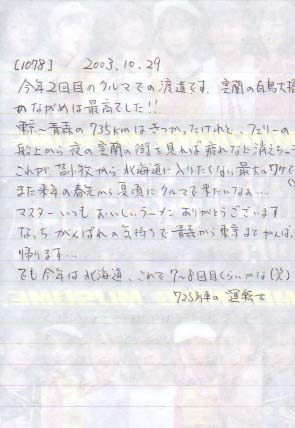 [1078] 2003.10.29
今年2回目のクルマでの渡道です。室蘭の白鳥大橋
のながめは最高でした!!
東京〜青森の735kmはきつかったけれど、フェリーの
船上から夜の室蘭の街を見れば疲れなど消えちゃ
これが苫小牧から北海道に入りたくない最大のワケで
また来年の春先から夏頃にクルマで来たいなぁ…
マスターいつもおいしいラーメンありがとうございます
なっち がんばれの気持ちで青森から東京までがんば
帰ります…
でも今年は北海道、これで7〜8回目くらいかな(笑)
723系車の運転士